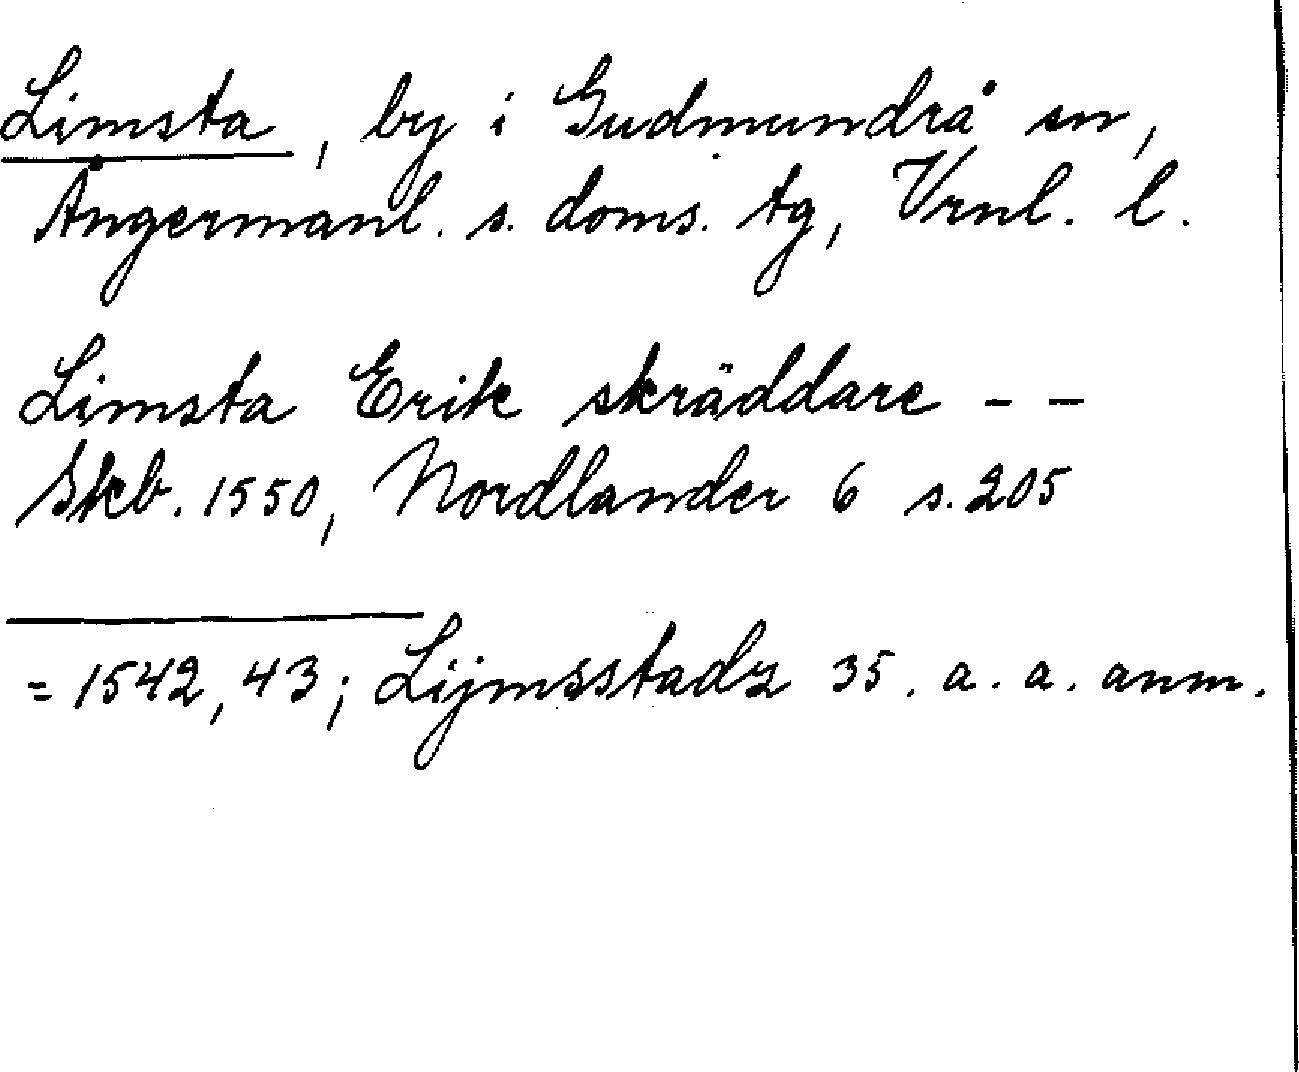 Limsta, by i Gudmundrå sn,
Ångermanl. s. doms. tg, Vrnl. l.
Limsta Erik skräddare - -
Skb. 1550, Nordlander 6 s. 205
= 1542, 43; Lijmsstadz 35. a. a. anm.